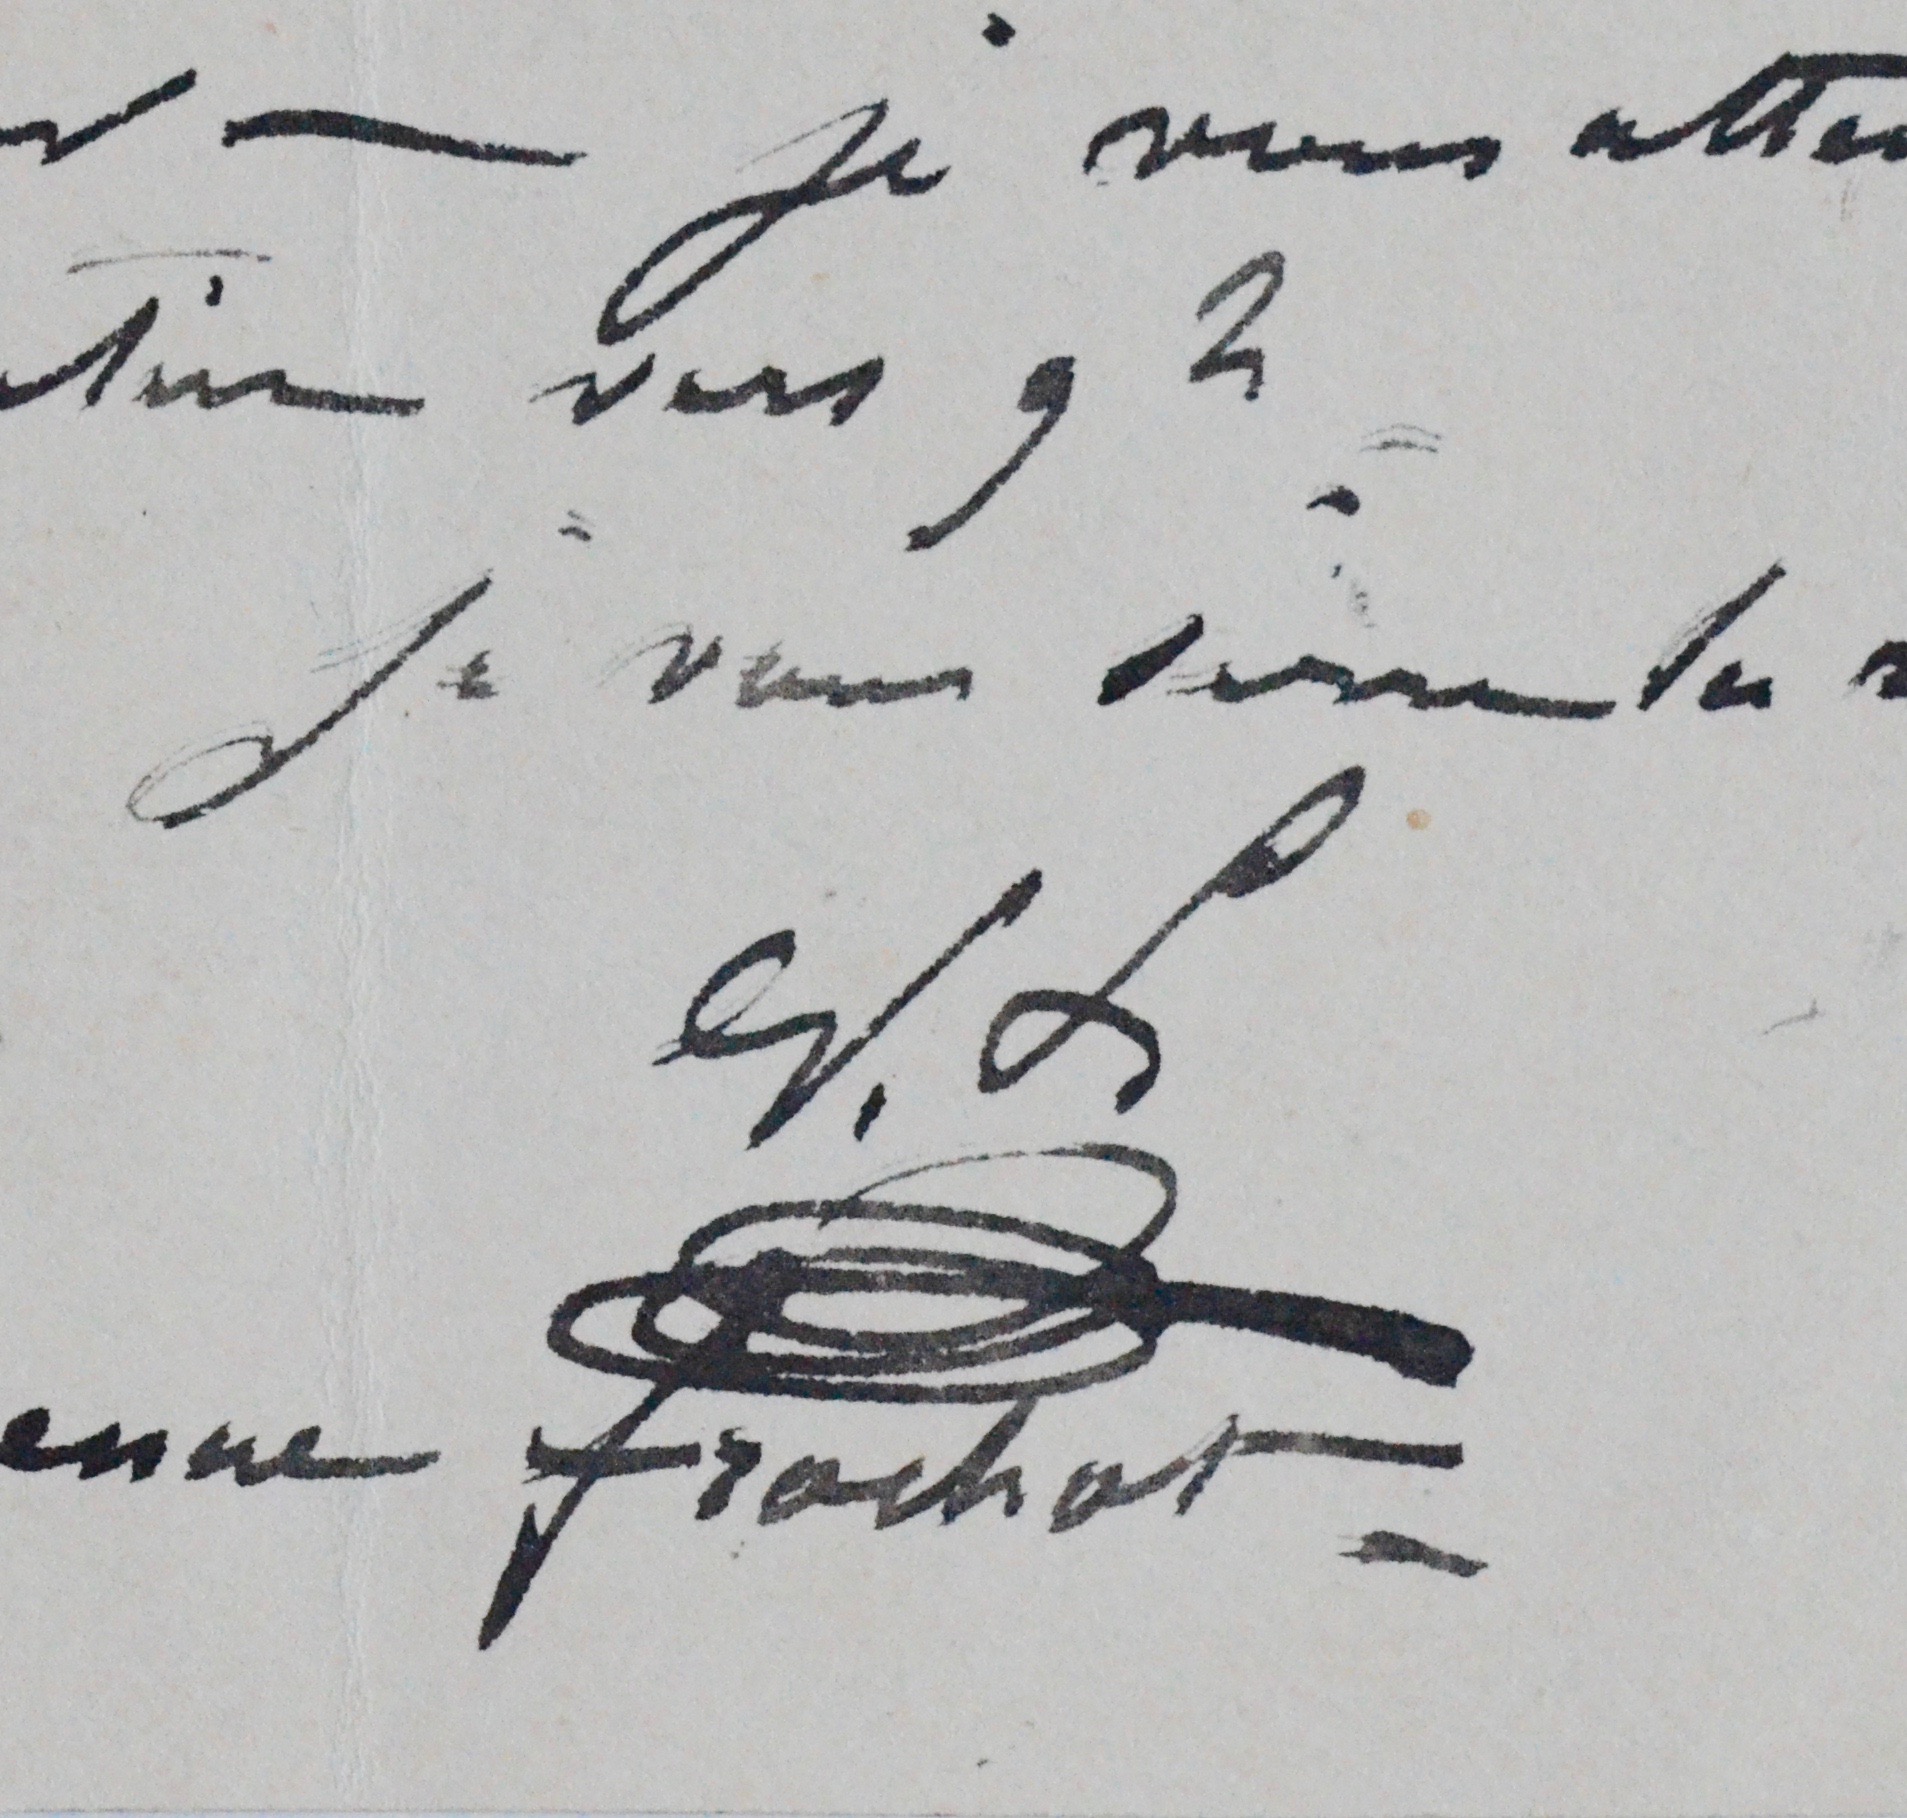 je vous atten
vers 9 h
Je vous serre la
G. L
enue frochot